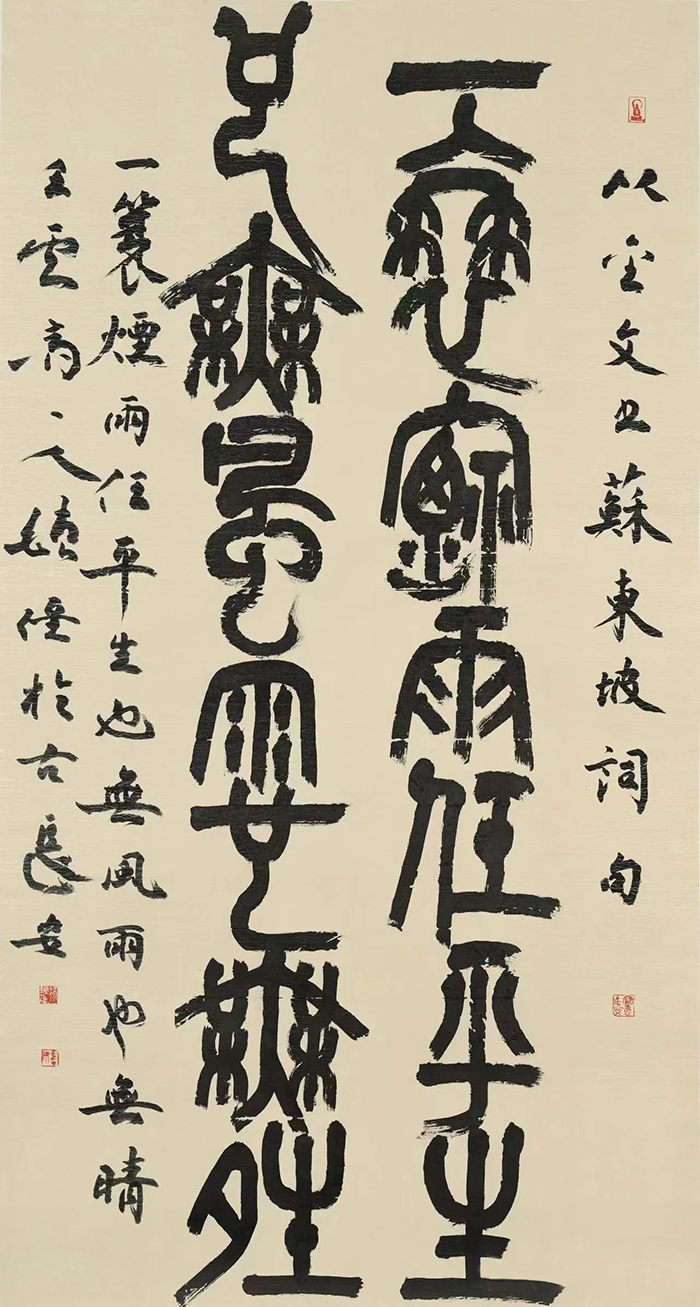 以金文书蘇東坡詞句
一蓑煙雨任平生
也無風雨也無晴
一蓑煙雨任平生也無風雨也無晴
於古長安